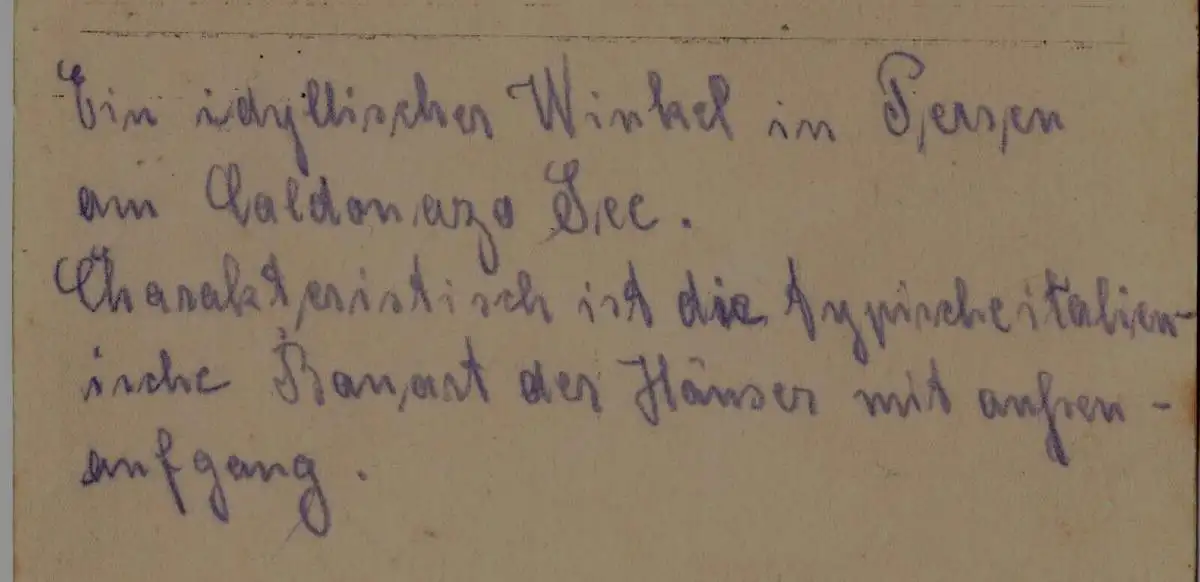 Ein idyllischer Winkel in Persen
am Caldonazo See.
Charakteristisch ist die typische italien-
ische Bauart der Häuser mit außen-
aufgang.